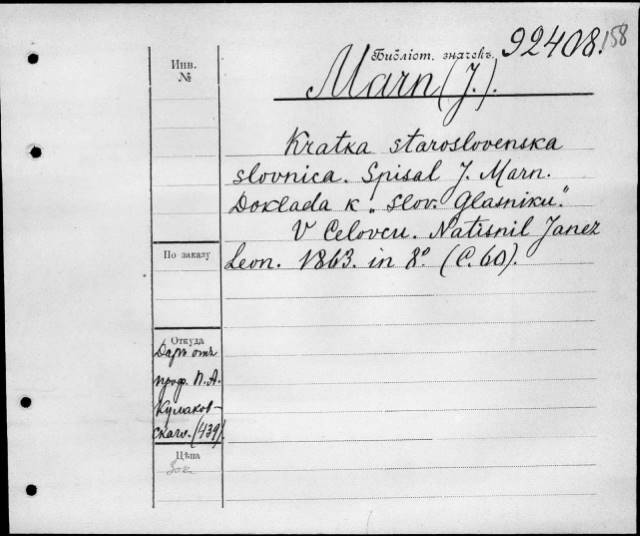 Библіот. значекъ.
92408.
158
Инв.
№
Marn (J.).
Kratka staroslovenska
slovnica. Spisal J. Marn.
Doklada k „Slov. Glasniku“.
V Celovcu. Natisnil Janez
Leon. 1863. in 8° (C. 60).
По заказу
Откуда
Даръ отъ
проф. П. А.
Кулаков-
скаго. (439).
Цѣна